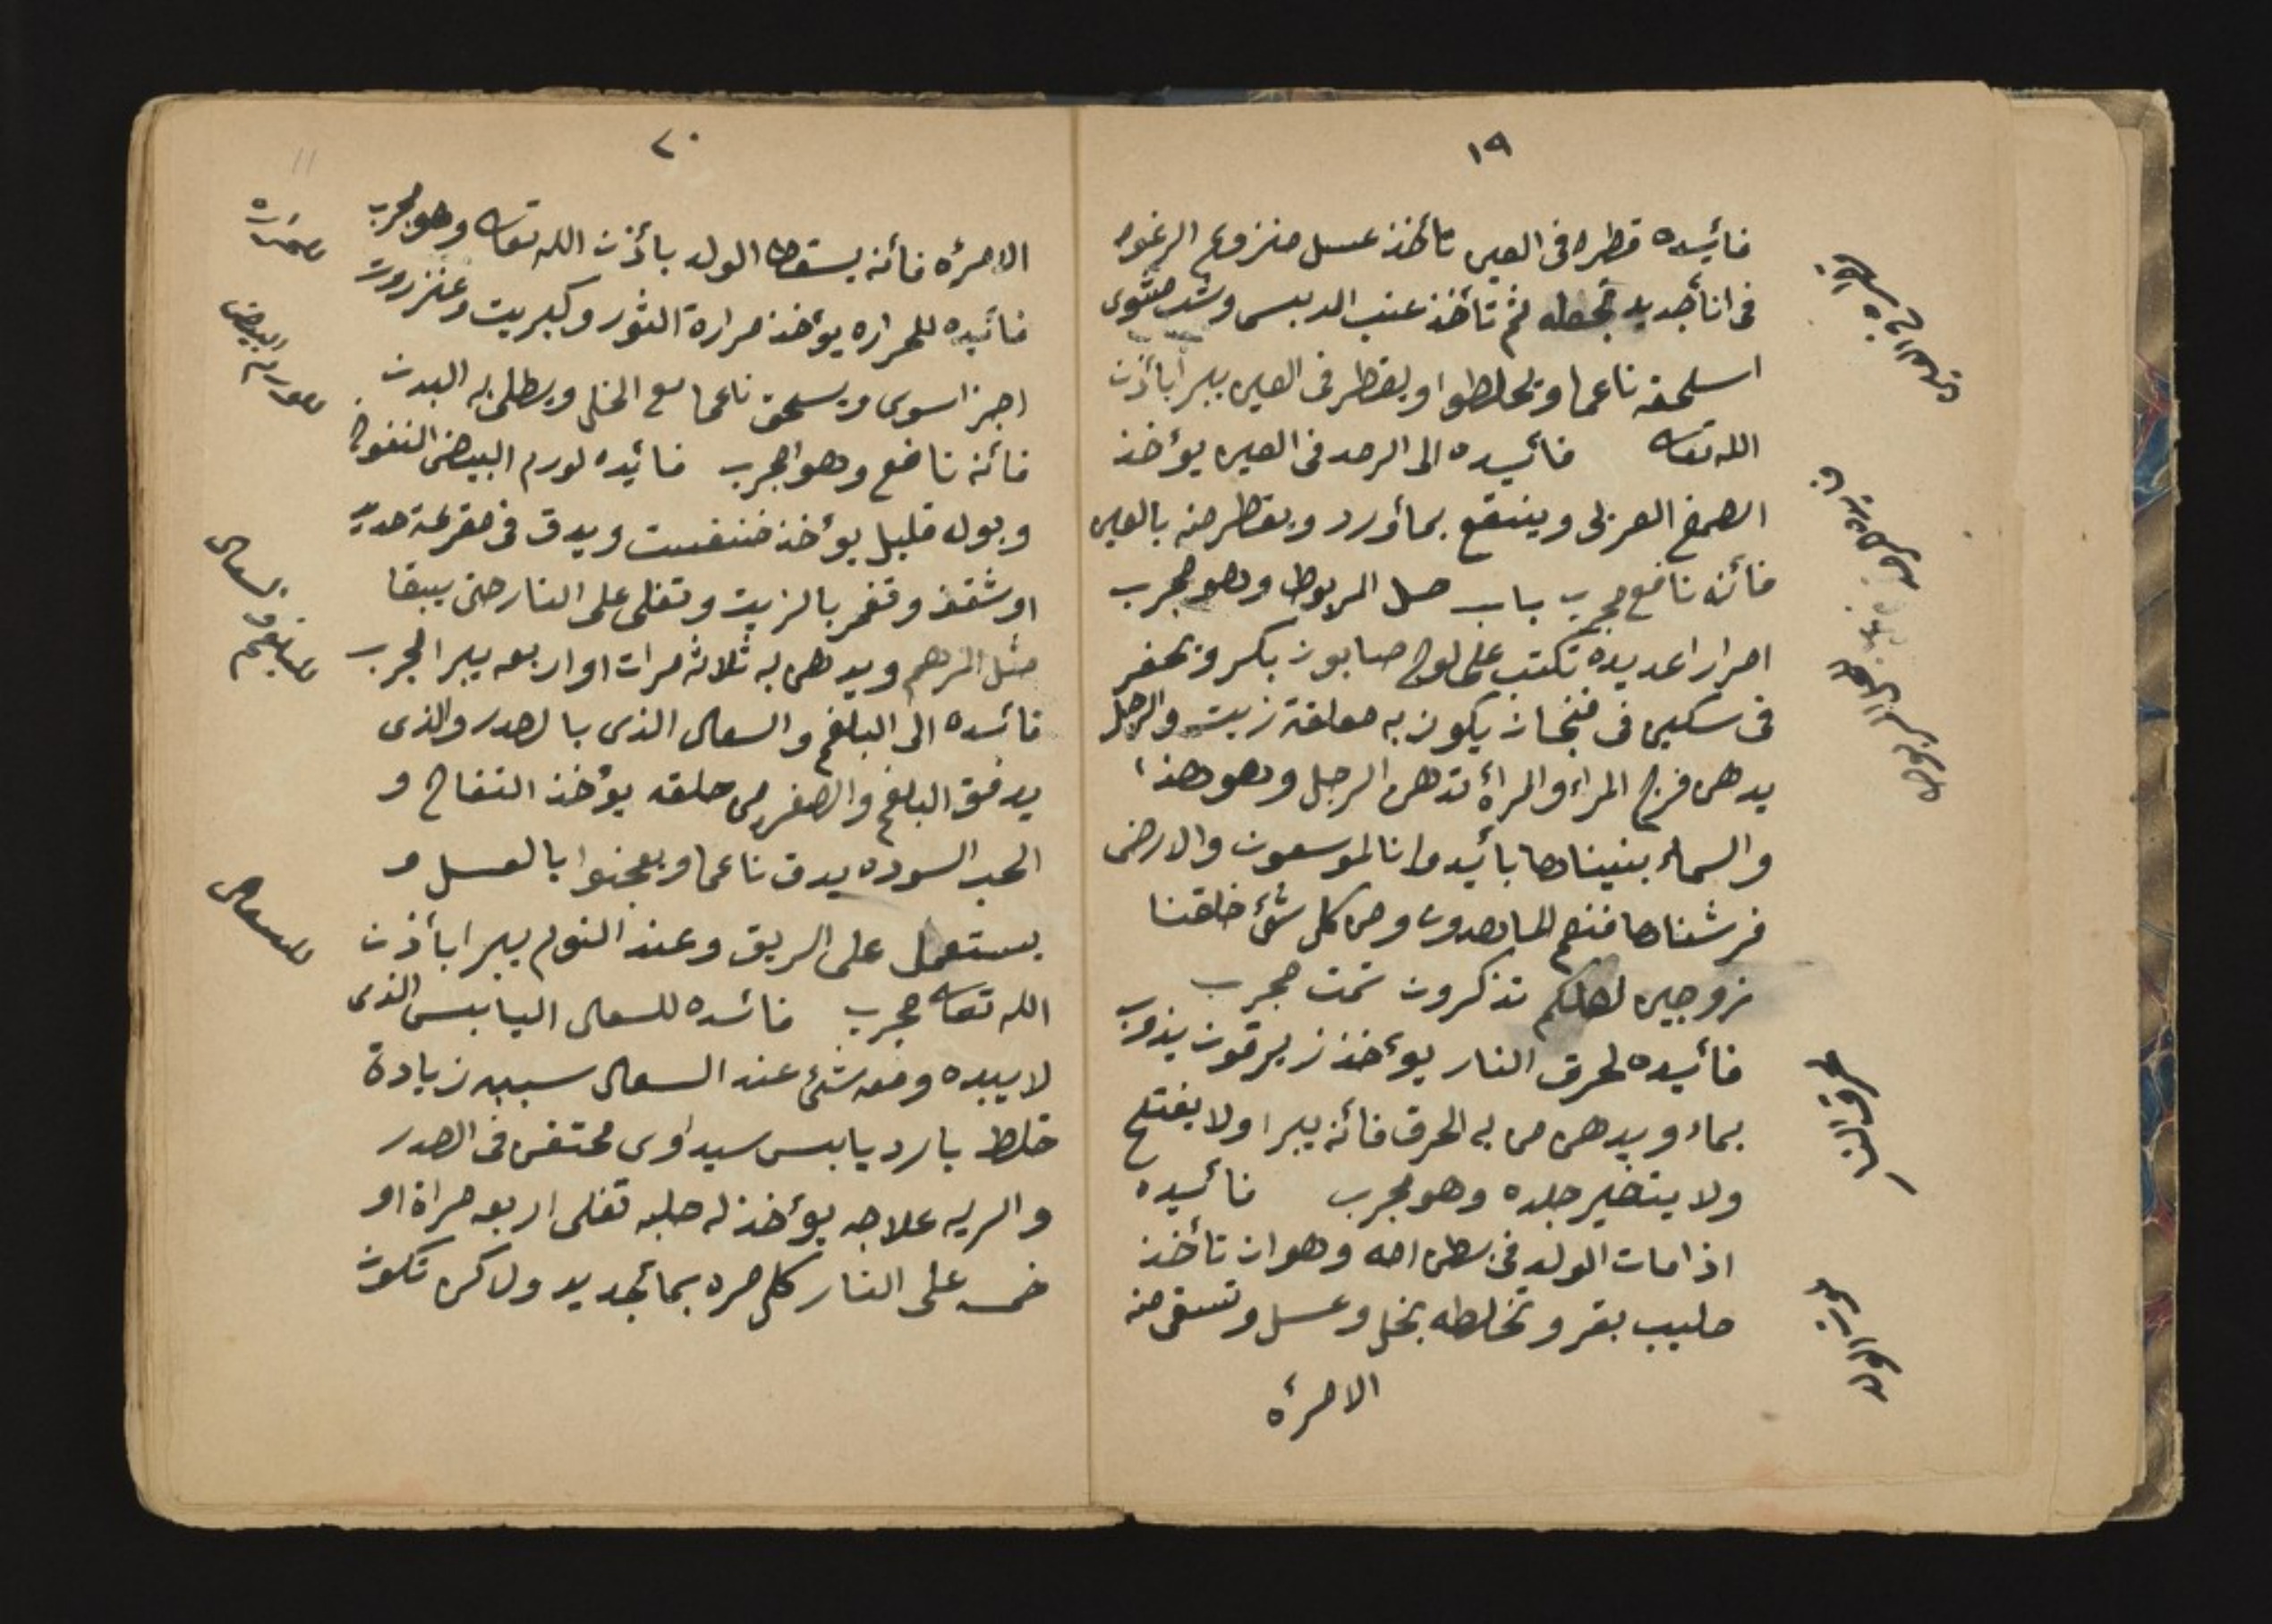 ١٩
فائيده قطره فى العين تاخذ عسل منزوع الرغوه
فى اناء جديد تحطه ثم تأخذ عنب الدبس وشب مشوى
اسلحقه ناعما وتخلطوا ويقطر فى العين يبرا بأذن
الله تعالى فائيده الى الرمد فى العين يؤخذ
الصمغ العربى وينقع بماورد ويقطر منه بالعين
فأنه نافع مجرب باب حل المربوط وهو مجرب
امرارا عديده تكتب على لوح صابون بكر وتحفر
فى سكين فى فنجان يكون به معلقة زيت والرجل
يدهن فرج المراء والمرأه تدهن الرجل وهو هذا
والسماء بنيناها بأيد وانا لموسعون والارض
فرشناها فنعم الماهدون ومن كل شئ خلقنا
زوجين لعلكم تذكرون تمت مجرب
فائيده لحرق النار يؤخذ زبرقون يذوب
بماء ويدهن من به الحرق فأنه يبرا ولا يفتح
ولا يتغير جلده وهو مجرب فائيده
اذا مات الولد فى بطن امه وهو ان تأخذ
حليب بقر وتخلطه بخل وعسل وتسقى منه
الامرأه
حرق النار
٢٠
الامرأه فأنه يسقط الولد بأذن الله تعالى وهو مجرب
فائيده للحراره يؤخذ مرارة الثور وكبريت وعنزروت
اجزا سوى ويسحق ناعما مع الخل ويطلى به البدن
فأنه نافع وهو مجرب فائيده لورم البيض النفوخ
وبول قليل يؤخذ خنفست ويدق فى
او شقف وتغمر بالزيت وتغلى على النار حتى يبقا
مثل المرهم ويدهن به ثلاثه مرات او اربعه يبر المجرب
فائده الى البلغم والسعال الذى بالصدر والذى
يدفق البلغم والصفر من حلقه يؤخذ التفاح و
الحب السوده يدق ناعما ويعجنوا بالعسل و
يستعمل على الريق وعند النوم يبرا بأذن
الله تعالى مجرب فائده للسعال اليابس الذى
لا يبده ومعه شئ عند السعال سببه زيادة
خلط بارد يابس سيداوى محتقن فى الصدر
والريه علاجه يؤخذ له حلبه تغلى اربعه مراة او
خمسه على النار كل مره بماء جديد ولاكن تكون
للبلغم والسعال
للسعال
11